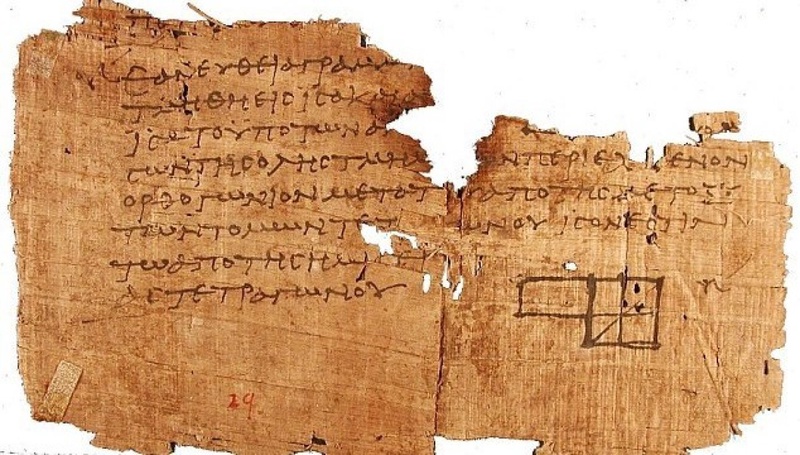 ΕΑΝΕΥΘΕΙΑΓΡΑΜΜ
ΤΜΗΘΗΕΙϹΙϹΑΚΑΙΑ
ΙϹΑΤΟΥΠΟΤΩΝΑ
ϹΩΝΤΗϹΟΛΗϹΤΜΗΜ ΩΝΠΕΡΙΕΧ ΜΕΝΟΝ
ΟΡΘΟΓΩΝΙΟΝΜΕΤΟΥΤ ΑΠΟΤΗϹΜΕΤΟΞΥ
ΤΩΝΤΟΜΩΝΤΕΤ ΩΝΟΥΙϹΟΝΕϹΤΙΝ
ΤΩΑΠΟΤΗϹΗΜΙϹΕΙ
ΑϹΤΕΤΡΑΓΩΝΟΥ
29